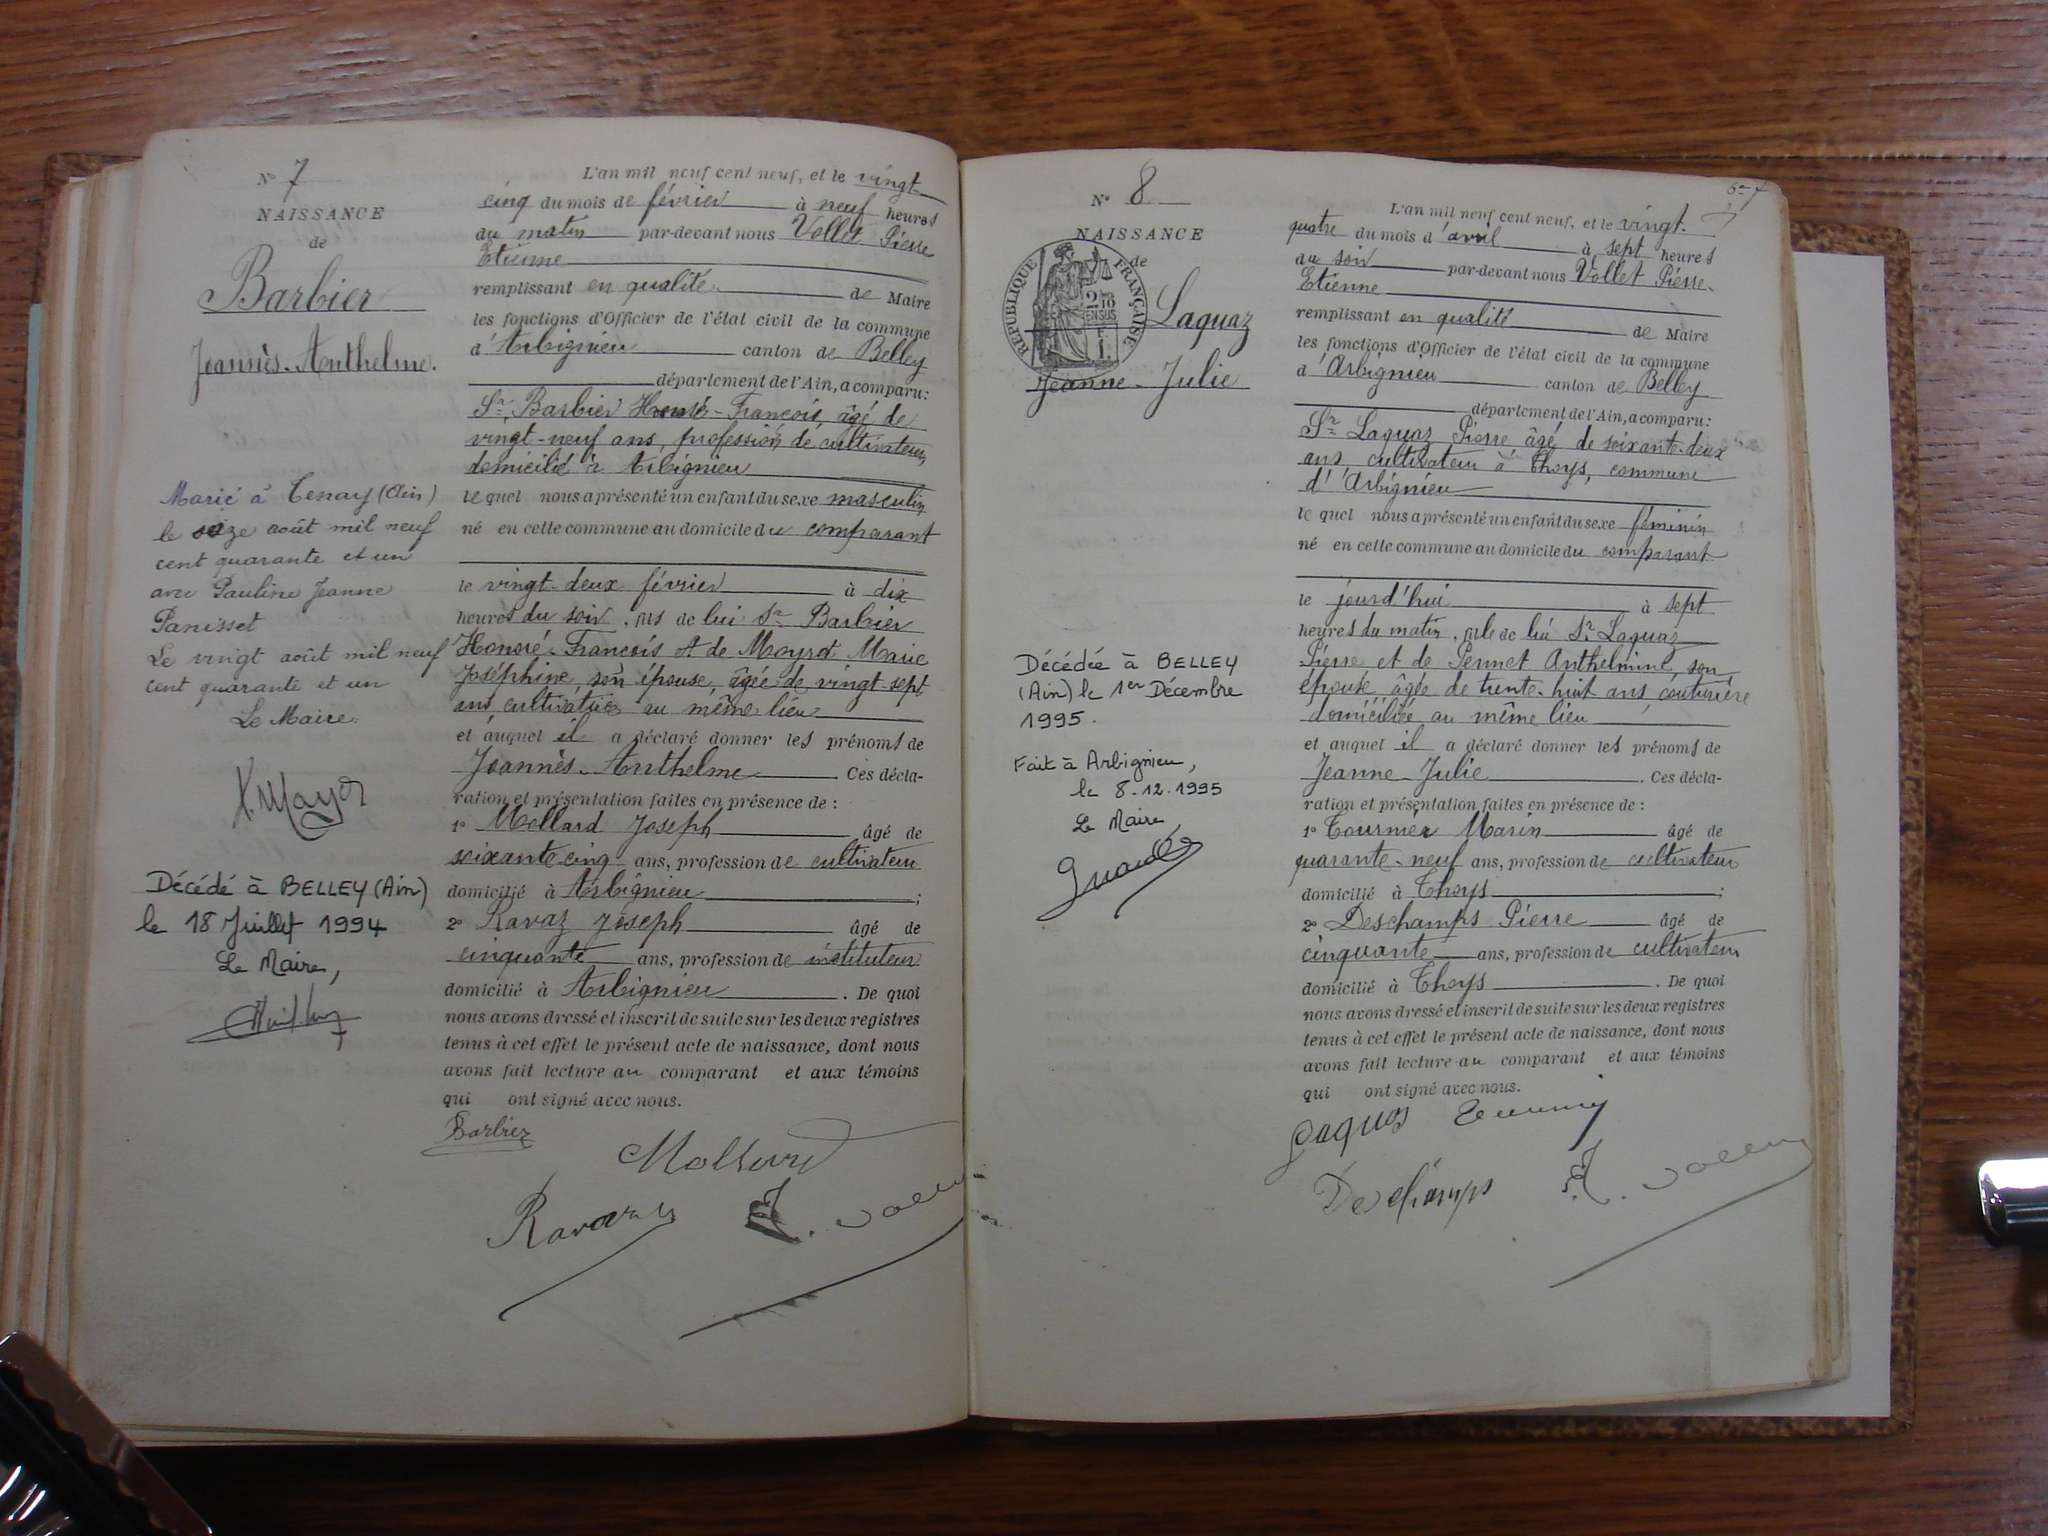 N° 7
NAISSANCE
de
Barbier
Joannès-Anthelme.
Marié à Tenay (Ain)
le seize août mil neuf
cent quarante et un
avec Pauline Jeanne
Panisset
Le vingt août mil neuf
cent quarante et un
Le Maire
Décédé à BELLEY (Ain)
le 18 Juillet 1994
Le Maire,
L'an mil neuf cent neuf, et le vingt
cinq du mois de février à neuf heures
du matin par-devant nous Vollet Pierre
Etienne
remplissant en qualité de Maire
les fonctions d'Officier de l'état civil de la commune
d'Arbignieu canton de Belley
département de l'Ain, a comparu:
Sr Barbier Honoré-François, âgé de
vingt-neuf ans, profession de cultivateur,
domicilié à Arbignieu
lequel nous a présenté un enfant du sexe masculin
né en cette commune au domicile du comparant
le vingt-deux février à dix
heures du soir, fils de lui Sr Barbier
Honoré-François et de Moyret Marie
Joséphine, son épouse, âgée de vingt-sept
ans, cultivatrice au même lieu
et auquel il a déclaré donner les prénoms de
Joannès-Anthelme. Ces décla-
ration et présentation faites en présence de :
1° Mollard Joseph âgé de
soixante-cinq ans, profession de cultivateur
domicilié à Arbignieu ;
2° Ravaz Joseph âgé de
cinquante ans, profession de instituteur
domicilié à Arbignieu. De quoi
nous avons dressé et inscrit de suite sur les deux registres
tenus à cet effet le présent acte de naissance, dont nous
avons fait lecture au comparant et aux témoins
qui ont signé avec nous.
Barbier
Mollard
Ravaz
N° 8
NAISSANCE
de
RÉPUBLIQUE FRANÇAISE
Laquaz
Jeanne-Julie
Décédée à BELLEY
(Ain) le 1er Décembre
1995.
Fait à Arbignieu,
le 8.12.1995
Le Maire,
L'an mil neuf cent neuf, et le vingt-
quatre du mois d'avril à sept heures
du soir par-devant nous Vollet Pierre-
Etienne
remplissant en qualité de Maire
les fonctions d'Officier de l'état civil de la commune
d'Arbignieu canton de Belley
département de l'Ain, a comparu:
Sr Laquaz Pierre âgé de soixante-deux
ans cultivateur à Thoys, commune
d'Arbignieu
lequel nous a présenté un enfant du sexe féminin
né en cette commune au domicile du comparant
le jourd'hui à sept
heures du matin, fille de lui Sr Laquaz
Pierre et de Pennet Anthelmine, son
épouse, âgée de trente-huit ans, couturière
domiciliée au même lieu
et auquel il a déclaré donner les prénoms de
Jeanne-Julie. Ces décla-
ration et présentation faites en présence de :
1° Tournier Marin âgé de
quarante-neuf ans, profession de cultivateur
domicilié à Thoys ;
2° Deschamps Pierre âgé de
cinquante ans, profession de cultivateur
domicilié à Thoys. De quoi
nous avons dressé et inscrit de suite sur les deux registres
tenus à cet effet le présent acte de naissance, dont nous
avons fait lecture au comparant et aux témoins
qui ont signé avec nous.
Laquaz
Deschamps